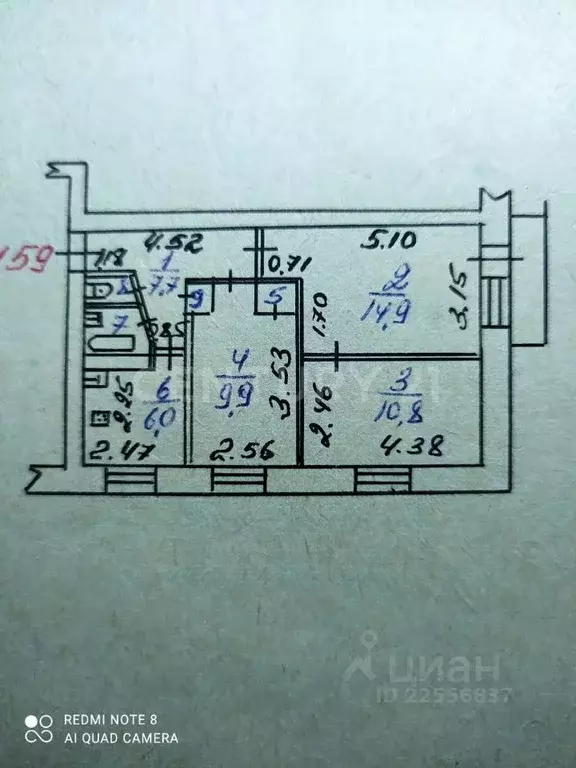 159
4.52
1.18
1
7.7
0.71
5.10
2
14.9
3.15
1.70
8
7
9
5
4
9.9
3.53
2.56
6
6.0
2.25
2.47
3
10.8
2.46
4.38
CENTURY 21
циан
ID 22556837
REDMI NOTE 8
AI QUAD CAMERA